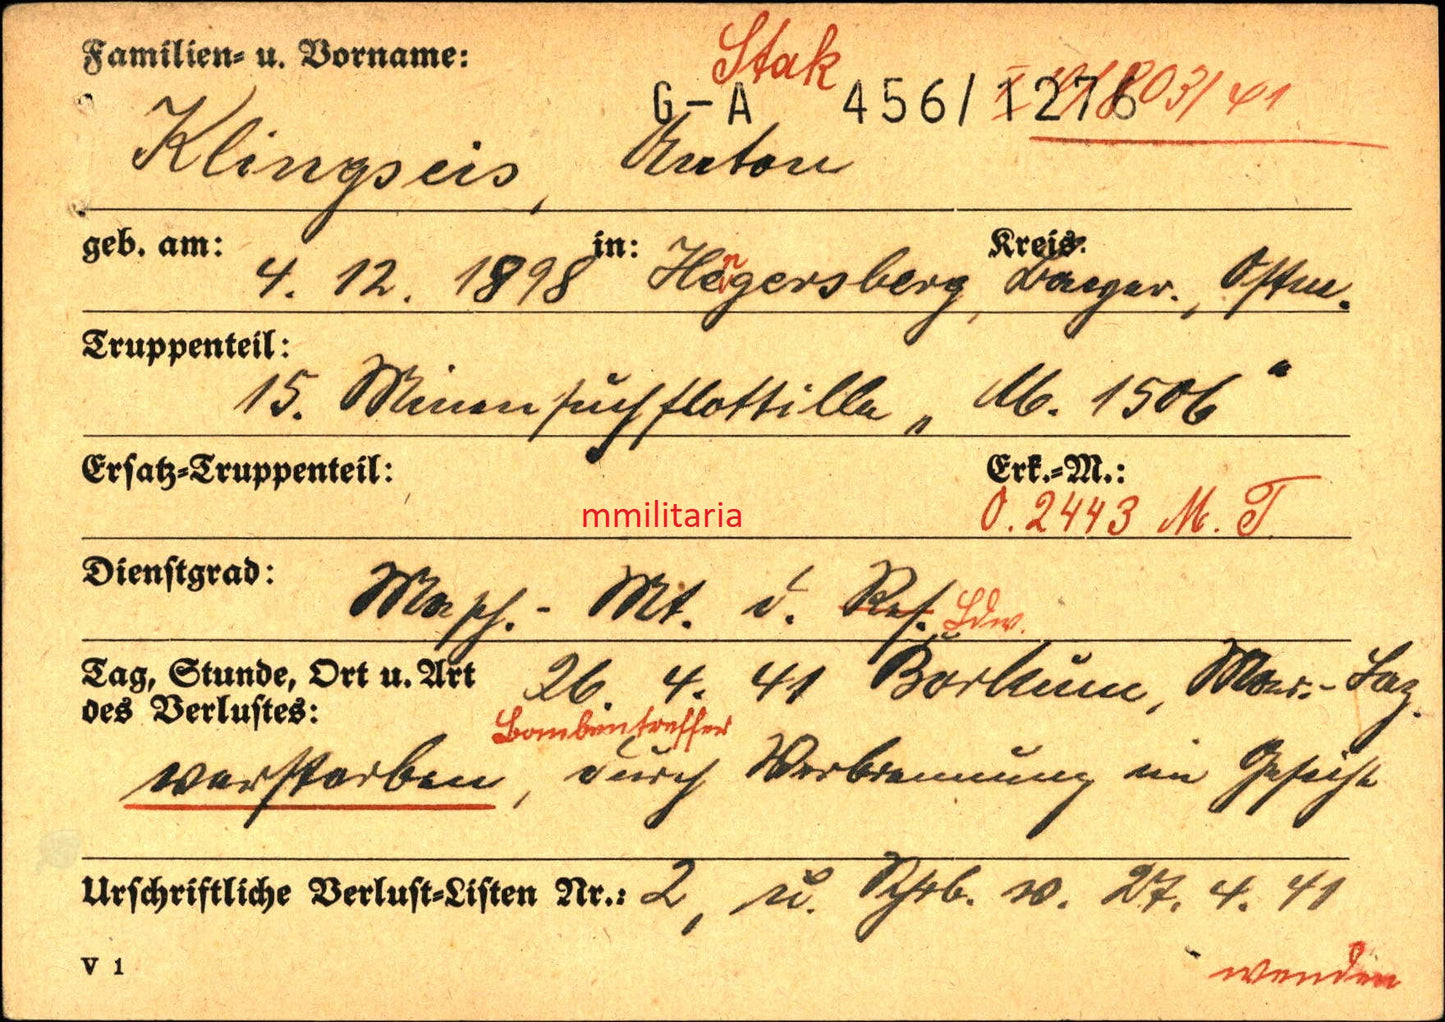 Familien- u. Vorname:
Stak
G-A 456/1276
803/41
Klingseis, Anton
geb. am: 4. 12. 1898 in: Hegersberg, Kreis:
Truppenteil:
15. Minensuchflottille „M. 1506“
Ersatz-Truppenteil:
Erk.-M.:
mmilitaria
O. 2443 M. T
Dienstgrad:
Masch.- Mt. d. Res. Ldw.
Tag, Stunde, Ort u. Art 26. 4. 41 Borkum, Mar.- Laz.
des Verlustes:
Bombentreffer
verstorben, durch Verbrennung im Gesicht
Urschriftliche Verlust-Listen Nr.: 2, u. Schrb. v. 27. 4. 41
V 1
wenden